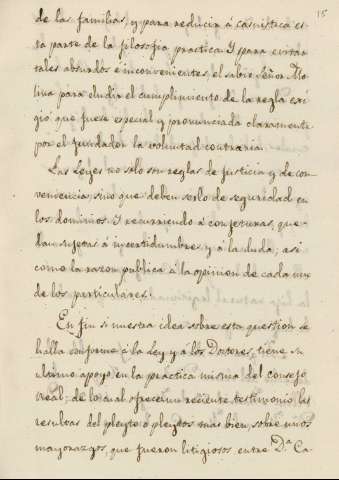 15
de las familias, y para reducir á casuistica es-
ta parte de la filosofia practica. Y para evitar
tales absurdos é inconvenientes, el sabio Señor Mo-
lina para eludir el cumplimiento de la regla exi-
gió que fuese especial y pronunciada claramente
por el fundador la voluntad contraria.
Las Leyes no sólo son reglas de justicia y de con-
veniencia, sino que deben serlo de seguridad en
los dominios. Y recurriendo á conjeturas, que-
dan sujetas á incertidumbres y a la duda; asi
como la razon publica á la opinion de cada uno
de los particulares.
En fin si nuestra idea sobre esta question se
halla conforme á la Ley y a los Doctores, tiene su
ultimo apoyo en la practica misma del consejo
real; de lo cual ofrecen un reciente testimonio las
resultas del pleyto ó pleytos mas bien, sobre unos
mayorazgos, que fueron litigiosos entre D.ª Ca-